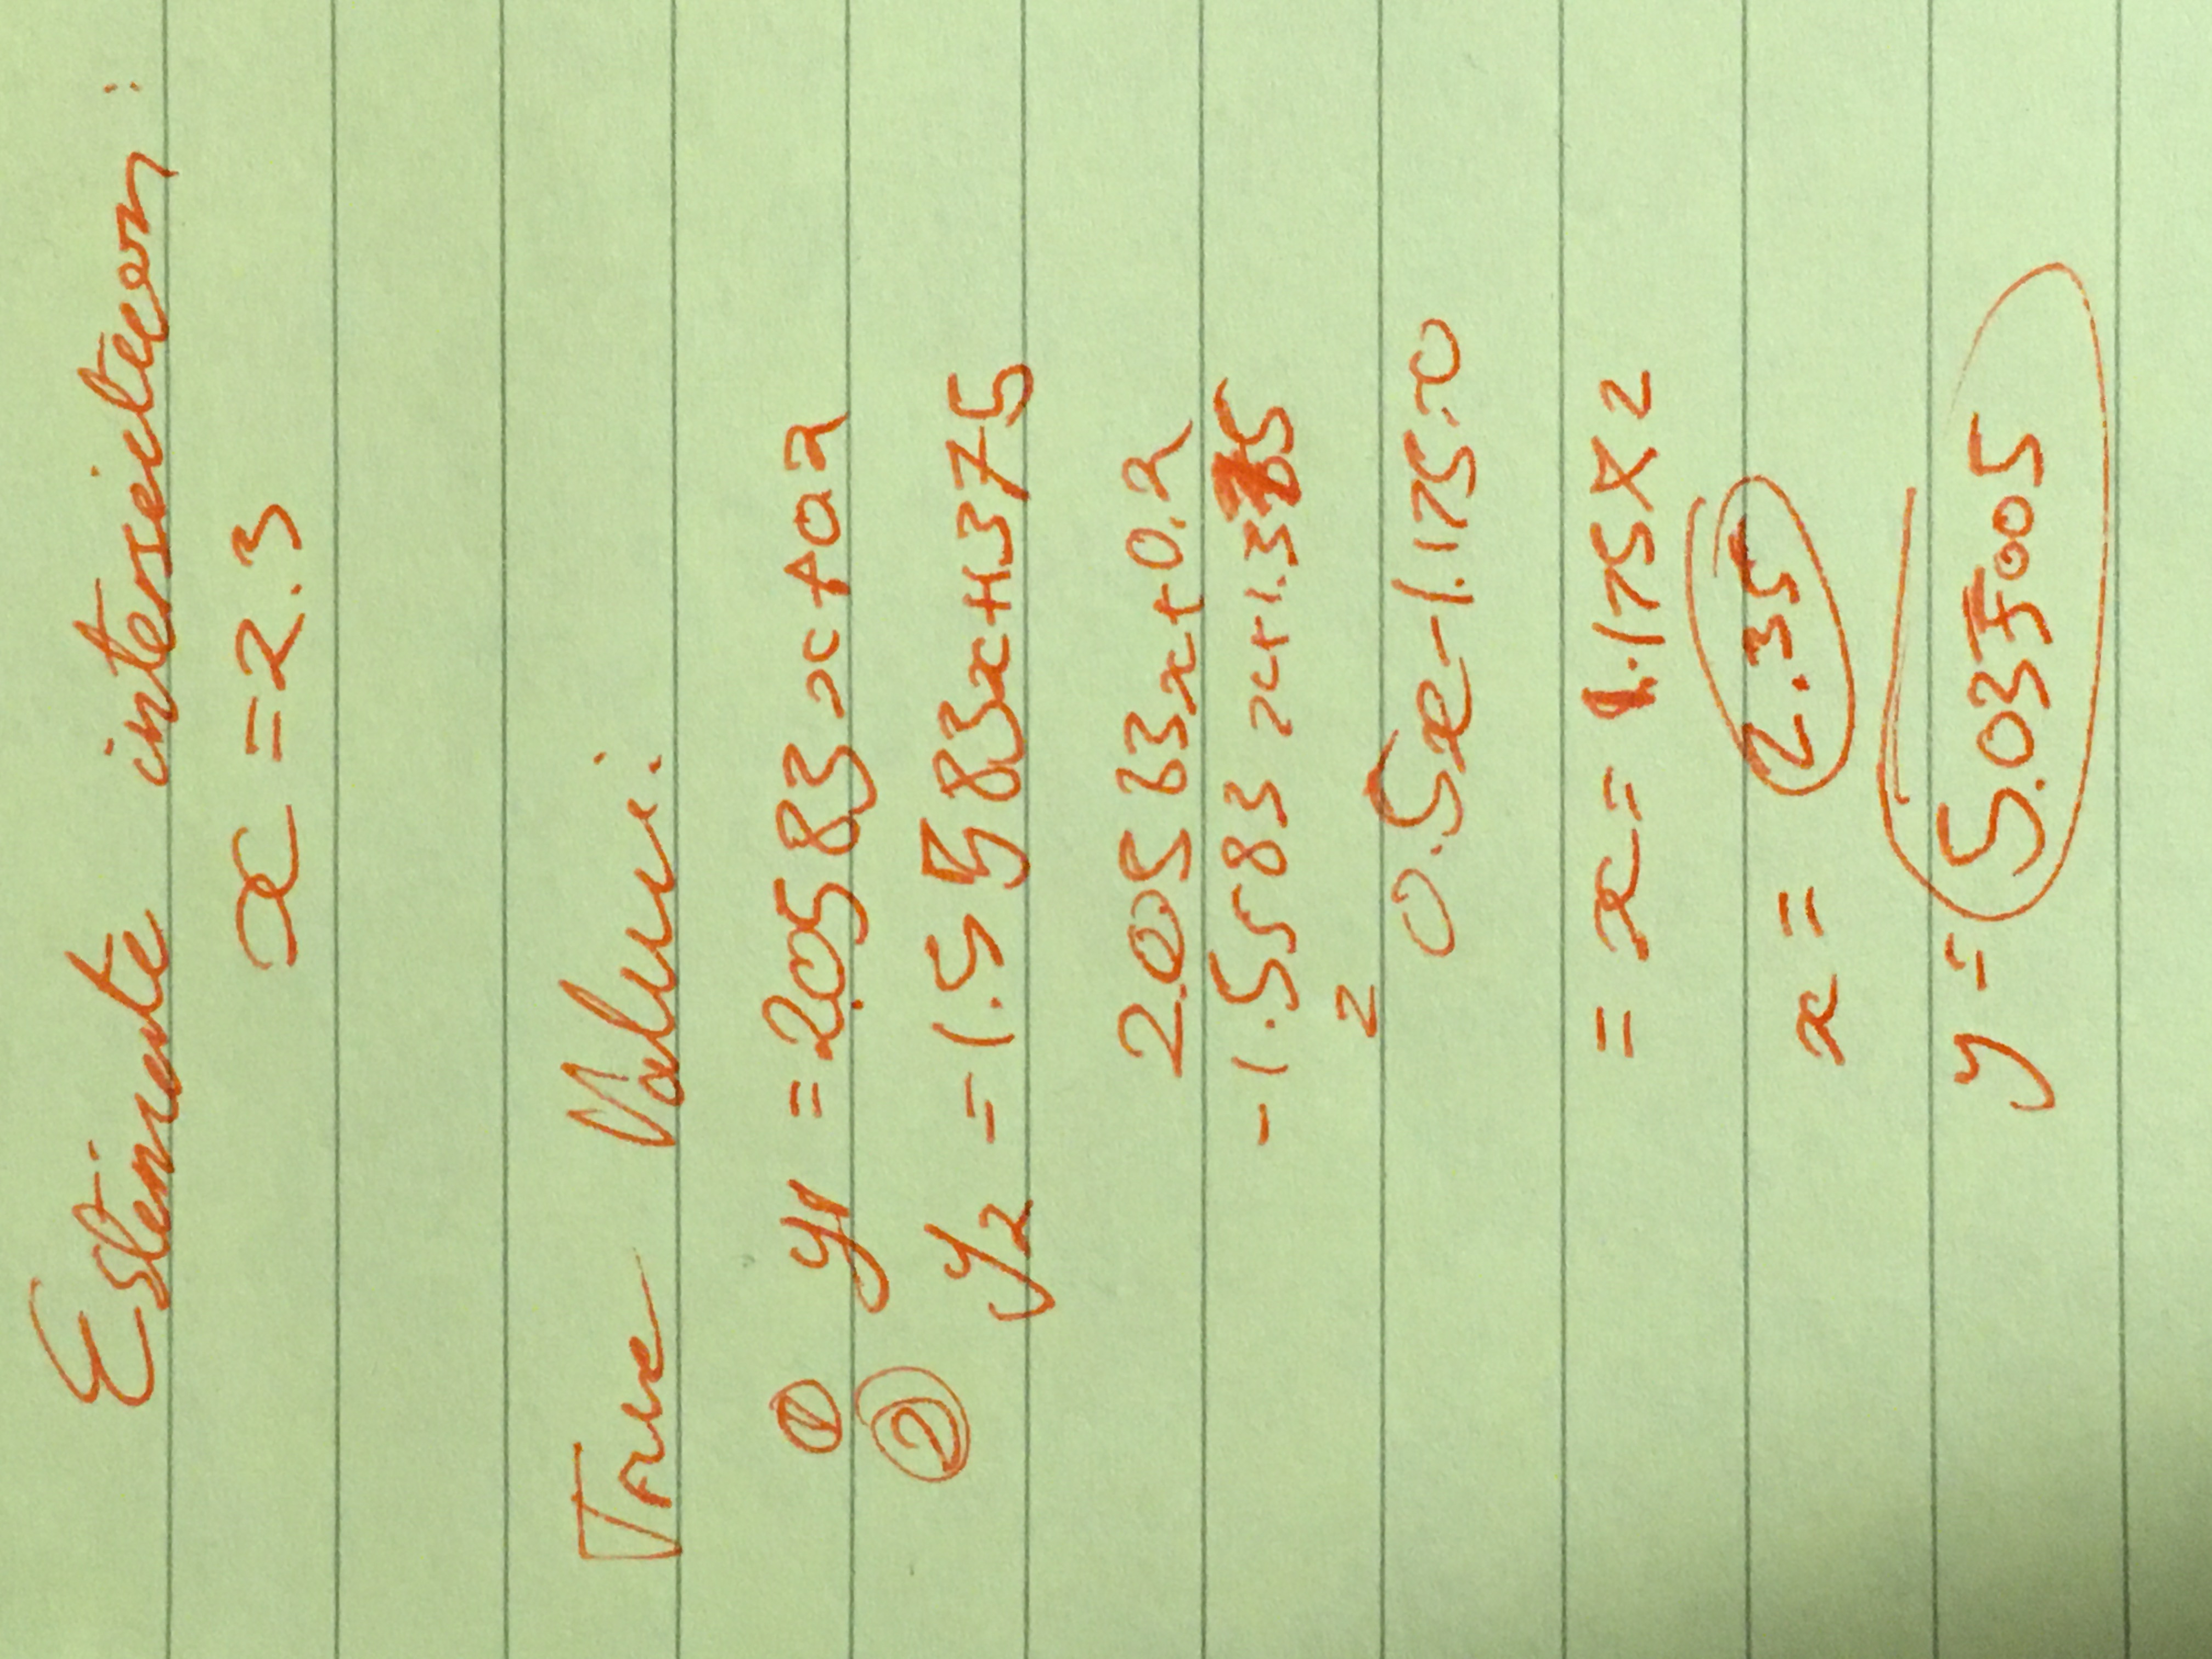 Estimate intersection:
x = 2.3
True Value:
① y1 = 2.0583x+0.2
② y2 = 1.5583x+1.375
2.0583x+0.2
-1.5583x+1.375
=
0.5x-1.175=0
= x = 1.175×2
x = 2.35
y = 5.037005